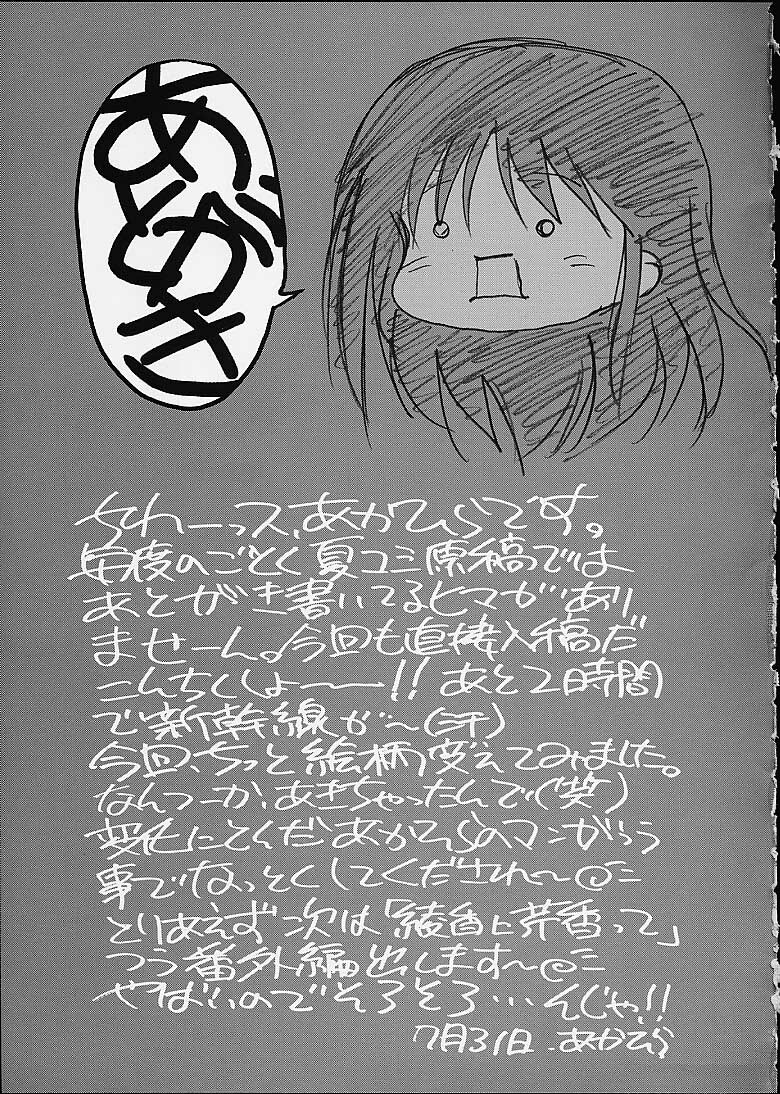 あとがき
ちわーっス、あかひらです。
毎度のごとく夏コミ原稿では
あとがき書いてるヒマがあり
ませーん。今回も直接入稿だ
こんちくしょーーー!! あと2時間
で新幹線が〜(汗)
今回、ちっと絵柄変えてみました。
なんつーか、あきちゃったんで(笑)
変化にとんだあかひらのマンがっつう
事でなっとくしてくだされ〜
とりあえず次は「綾香と芹香って」
つう番外編出します〜
やばいのでそろそろ…んじゃ!!
7月31日 あかひら